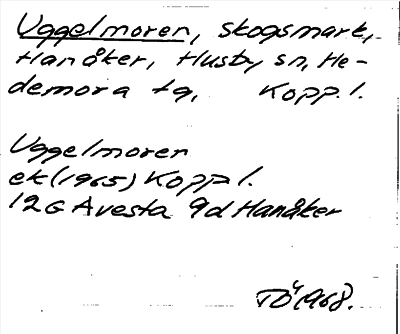 Uggelmoren, skogsmark,
Hanåker, Husby sn, He-
demora tg, Kopp. l.
Uggelmoren
ek (1965) Kopp l.
12G Avesta 9d Hanåker
TÖ 1968.